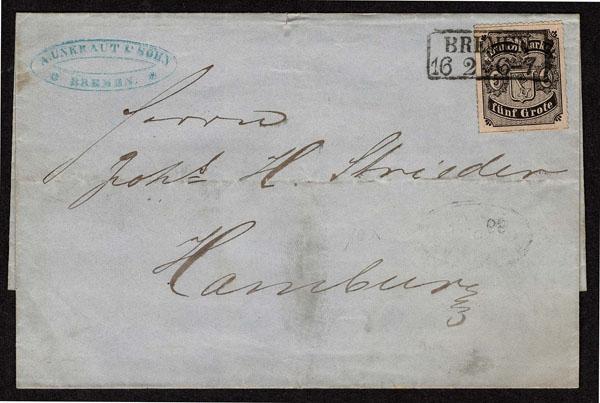 A. UNKRAUT & SOHN
BREMEN.
BREMEN
16 2 6-7
fünf Grote
Herrn
Joh.s H. Strieder
Hamburg